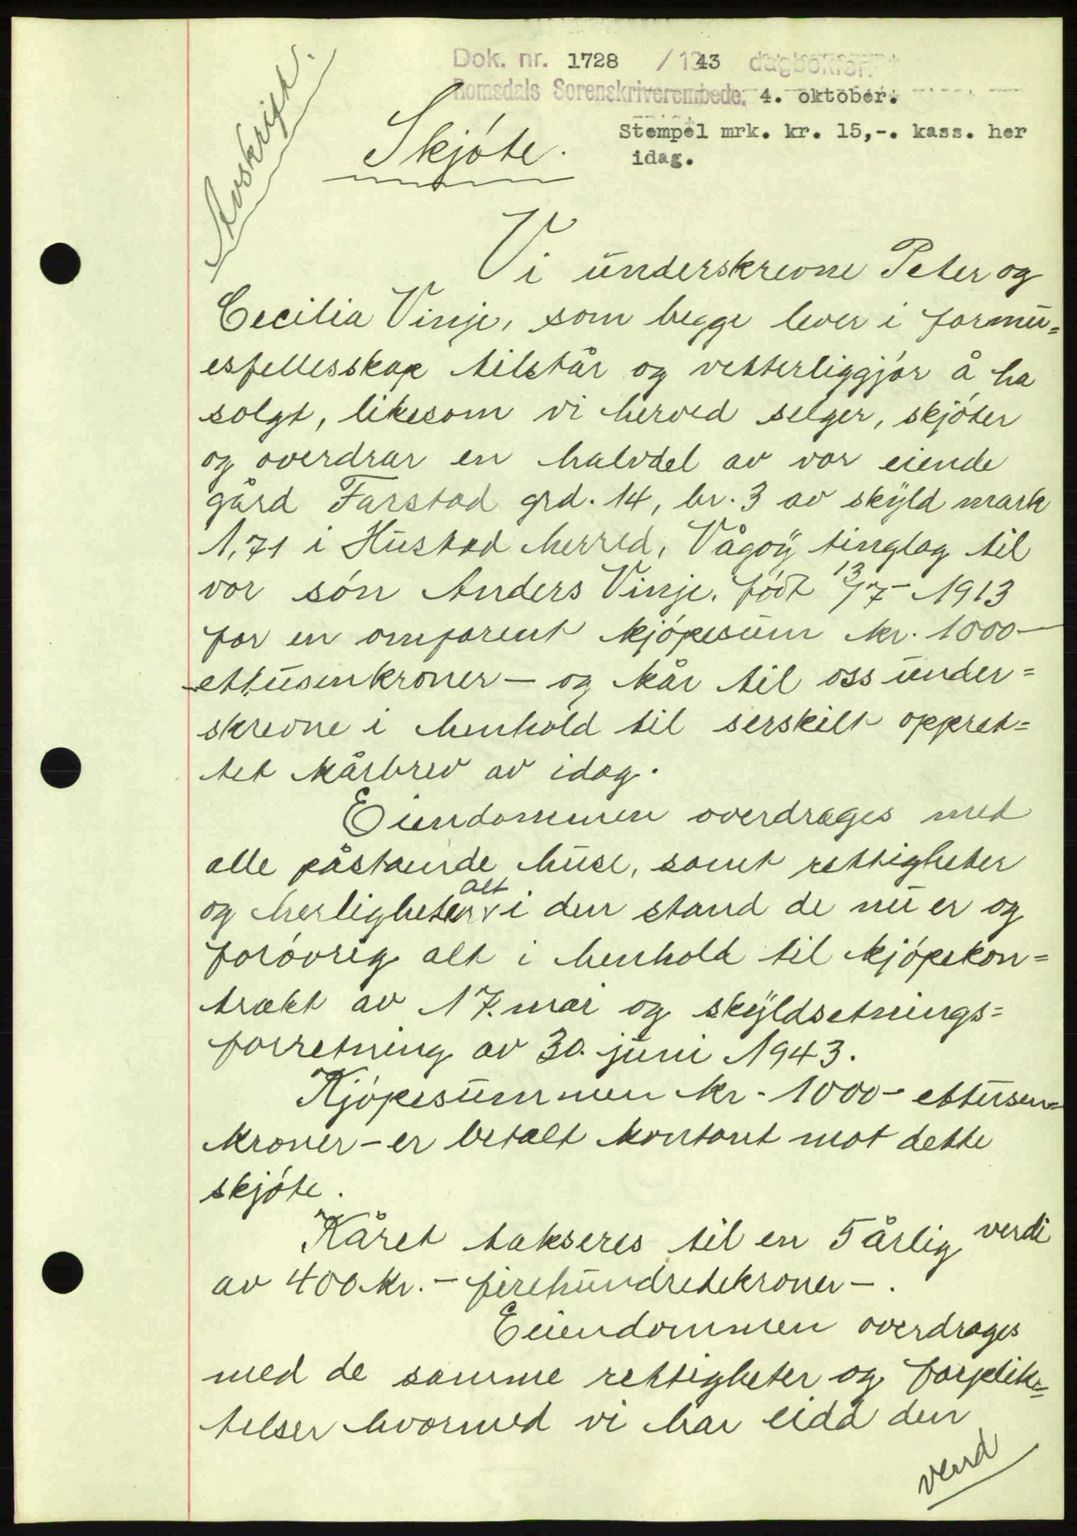 Dok. nr. 1728 / 1943 dagbokført
Romsdals Sorenskriverembede, 4. oktober.
Stempel mrk. kr. 15,-. kass. her
idag.
Avskrift.
Skjóte.
Vi underskrevne Peter og
Cecilia Vinje, som begge lever i formu=
esfellesskap tilstår og vetterliggjór å ha
solgt, likesom vi herved selger, skjóter
og overdrar en halvdel av vor eiende
gård Farstad grd. 14, br. 3 av skyld mark
1,71 i Hustad herred, Vågøy tinglag til
vor són Anders Vinje, fódt 13/7- 1913
for en omforent kjópesum kr. 1000-
-ettusenkroner- og kår til oss under=
skrevne i henhold til serskilt oppret=
tet kårbrev av idag.
Eiendommen overdrages med
alle påstående huse, samt rettigheter
og herligheter alt i den stand de nu er og
foróvrig alt i henhold til kjópekon=
trakt av 17. mai og skyldsetnings=
forretning av 30. juni 1943.
Kjópesummen kr. 1000- ettusen=
kroner- er betalt kontant mot dette
skjóte.
Kåret takseres til en 5 årlig verdi
av 400 kr. - firehundredekroner-.
Eiendommen overdrages
med de samme rettigheter og forplik=
telser hvormed vi har eidd den
vend